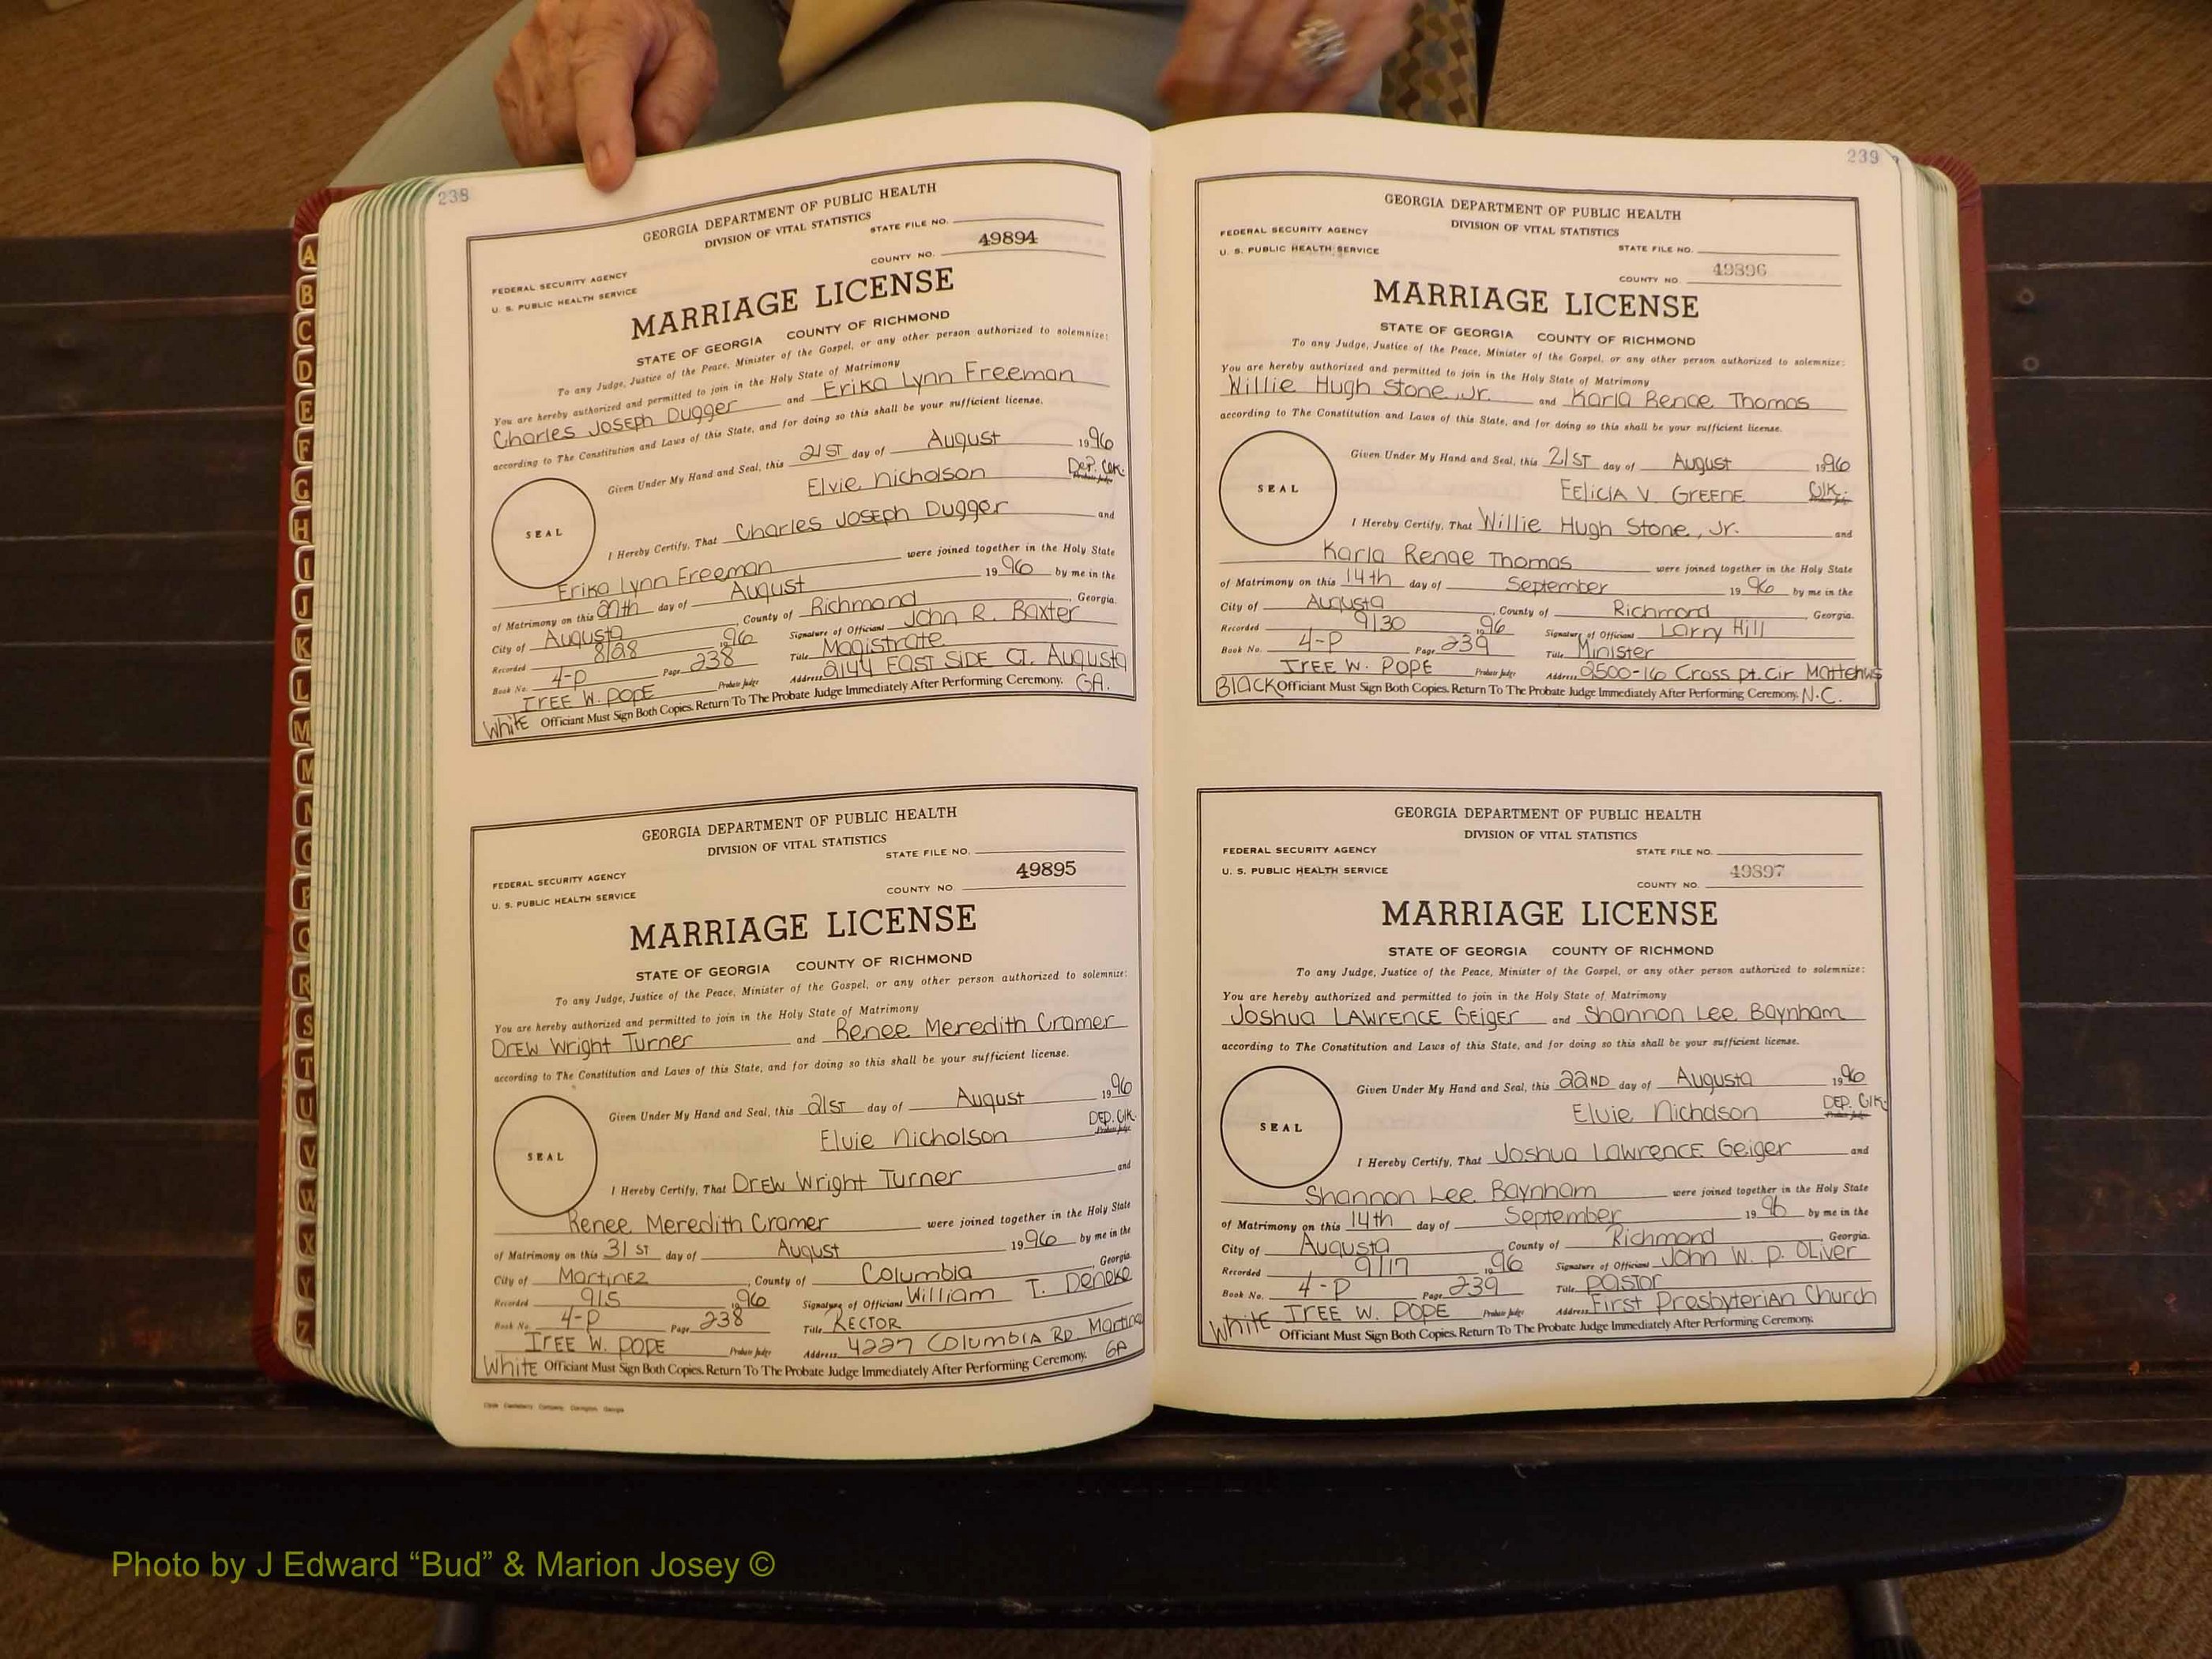 A
B
C
D
E
F
G
H
I
J
K
L
M
M
N
O
P
Q
R
S
T
U
V
W
X
Y
Z
238
GEORGIA DEPARTMENT OF PUBLIC HEALTH
DIVISION OF VITAL STATISTICS
STATE FILE NO.
49894
COUNTY NO.
FEDERAL SECURITY AGENCY
U. S. PUBLIC HEALTH SERVICE
MARRIAGE LICENSE
STATE OF GEORGIA COUNTY OF RICHMOND
To any Judge, Justice of the Peace, Minister of the Gospel, or any other person authorized to solemnize:
You are hereby authorized and permitted to join in the Holy State of Matrimony
Charles Joseph Dugger and Erika Lynn Freeman
according to The Constitution and Laws of this State, and for doing so this shall be your sufficient license.
Given Under My Hand and Seal, this 21ST day of August 1996
Elvie Nicholson Dep. Clk. Probate Judge
SEAL
I Hereby Certify, That Charles Joseph Dugger and
Erika Lynn Freeman were joined together in the Holy State
of Matrimony on this day of August 1996 by me in the
City of Augusta, County of Richmond, Georgia.
Recorded 8/28 1996 Signature of Officiant John R. Baxter
Book No. 4-P Page 238 Title Magistrate
IREE W. POPE Probate Judge Address 2144 EAST SIDE CT. Augusta
White Officiant Must Sign Both Copies. Return To The Probate Judge Immediately After Performing Ceremony. GA.
GEORGIA DEPARTMENT OF PUBLIC HEALTH
DIVISION OF VITAL STATISTICS
STATE FILE NO.
49895
COUNTY NO.
FEDERAL SECURITY AGENCY
U. S. PUBLIC HEALTH SERVICE
MARRIAGE LICENSE
STATE OF GEORGIA COUNTY OF RICHMOND
To any Judge, Justice of the Peace, Minister of the Gospel, or any other person authorized to solemnize:
You are hereby authorized and permitted to join in the Holy State of Matrimony
Drew Wright Turner and Renee Meredith Cramer
according to The Constitution and Laws of this State, and for doing so this shall be your sufficient license.
Given Under My Hand and Seal, this 21ST day of August 1996
Elvie Nicholson DEP. Clk. Probate Judge
SEAL
I Hereby Certify, That Drew Wright Turner and
Renee Meredith Cramer were joined together in the Holy State
of Matrimony on this 31ST day of August 1996 by me in the
City of Martinez, County of Columbia, Georgia
Recorded 9/5 1996 Signature of Officiant William T. Deneke
Book No. 4-P Page 238 Title RECTOR
IREE W. POPE Probate Judge Address 4227 Columbia RD. Martinez
White Officiant Must Sign Both Copies. Return To The Probate Judge Immediately After Performing Ceremony. GA
239
GEORGIA DEPARTMENT OF PUBLIC HEALTH
DIVISION OF VITAL STATISTICS
FEDERAL SECURITY AGENCY
U. S. PUBLIC HEALTH SERVICE
STATE FILE NO.
49896
COUNTY NO.
MARRIAGE LICENSE
STATE OF GEORGIA COUNTY OF RICHMOND
To any Judge, Justice of the Peace, Minister of the Gospel, or any other person authorized to solemnize:
You are hereby authorized and permitted to join in the Holy State of Matrimony
Willie Hugh Stone, Jr. and Karla Renae Thomas
according to The Constitution and Laws of this State, and for doing so this shall be your sufficient license.
Given Under My Hand and Seal, this 21ST day of August 1996
FELICIA V. GREENE Clk.
SEAL
I Hereby Certify, That Willie Hugh Stone, Jr. and
Karla Renae Thomas were joined together in the Holy State
of Matrimony on this 14th day of September 1996 by me in the
City of Augusta, County of Richmond, Georgia.
Recorded 9/30 1996 Signature of Officiant Larry Hill
Book No. 4-P Page 239 Title Minister
IREE W. POPE Probate Judge Address 2500-16 Cross pt. Cir Mattehws
Black Officiant Must Sign Both Copies. Return To The Probate Judge Immediately After Performing Ceremony. N.C.
GEORGIA DEPARTMENT OF PUBLIC HEALTH
DIVISION OF VITAL STATISTICS
FEDERAL SECURITY AGENCY
U. S. PUBLIC HEALTH SERVICE
STATE FILE NO.
49897
COUNTY NO.
MARRIAGE LICENSE
STATE OF GEORGIA COUNTY OF RICHMOND
To any Judge, Justice of the Peace, Minister of the Gospel, or any other person authorized to solemnize:
You are hereby authorized and permitted to join in the Holy State of Matrimony
Joshua LAWRENCE Geiger and Shannon Lee Baynham
according to The Constitution and Laws of this State, and for doing so this shall be your sufficient license.
Given Under My Hand and Seal, this 22ND day of Augusta 1996
Elvie Nicholson DEP. Clk. Probate Judge
SEAL
I Hereby Certify, That Joshua Lawrence Geiger and
Shannon Lee Baynham were joined together in the Holy State
of Matrimony on this 14th day of September 1996 by me in the
City of Augusta, County of Richmond, Georgia.
Recorded 9/17 1996 Signature of Officiant John W. P. Oliver
Book No. 4-P Page 239 Title Pastor
White IREE W. POPE Probate Judge Address First Presbyterian Church
Officiant Must Sign Both Copies. Return To The Probate Judge Immediately After Performing Ceremony.
Photo by J Edward “Bud” & Marion Josey ©